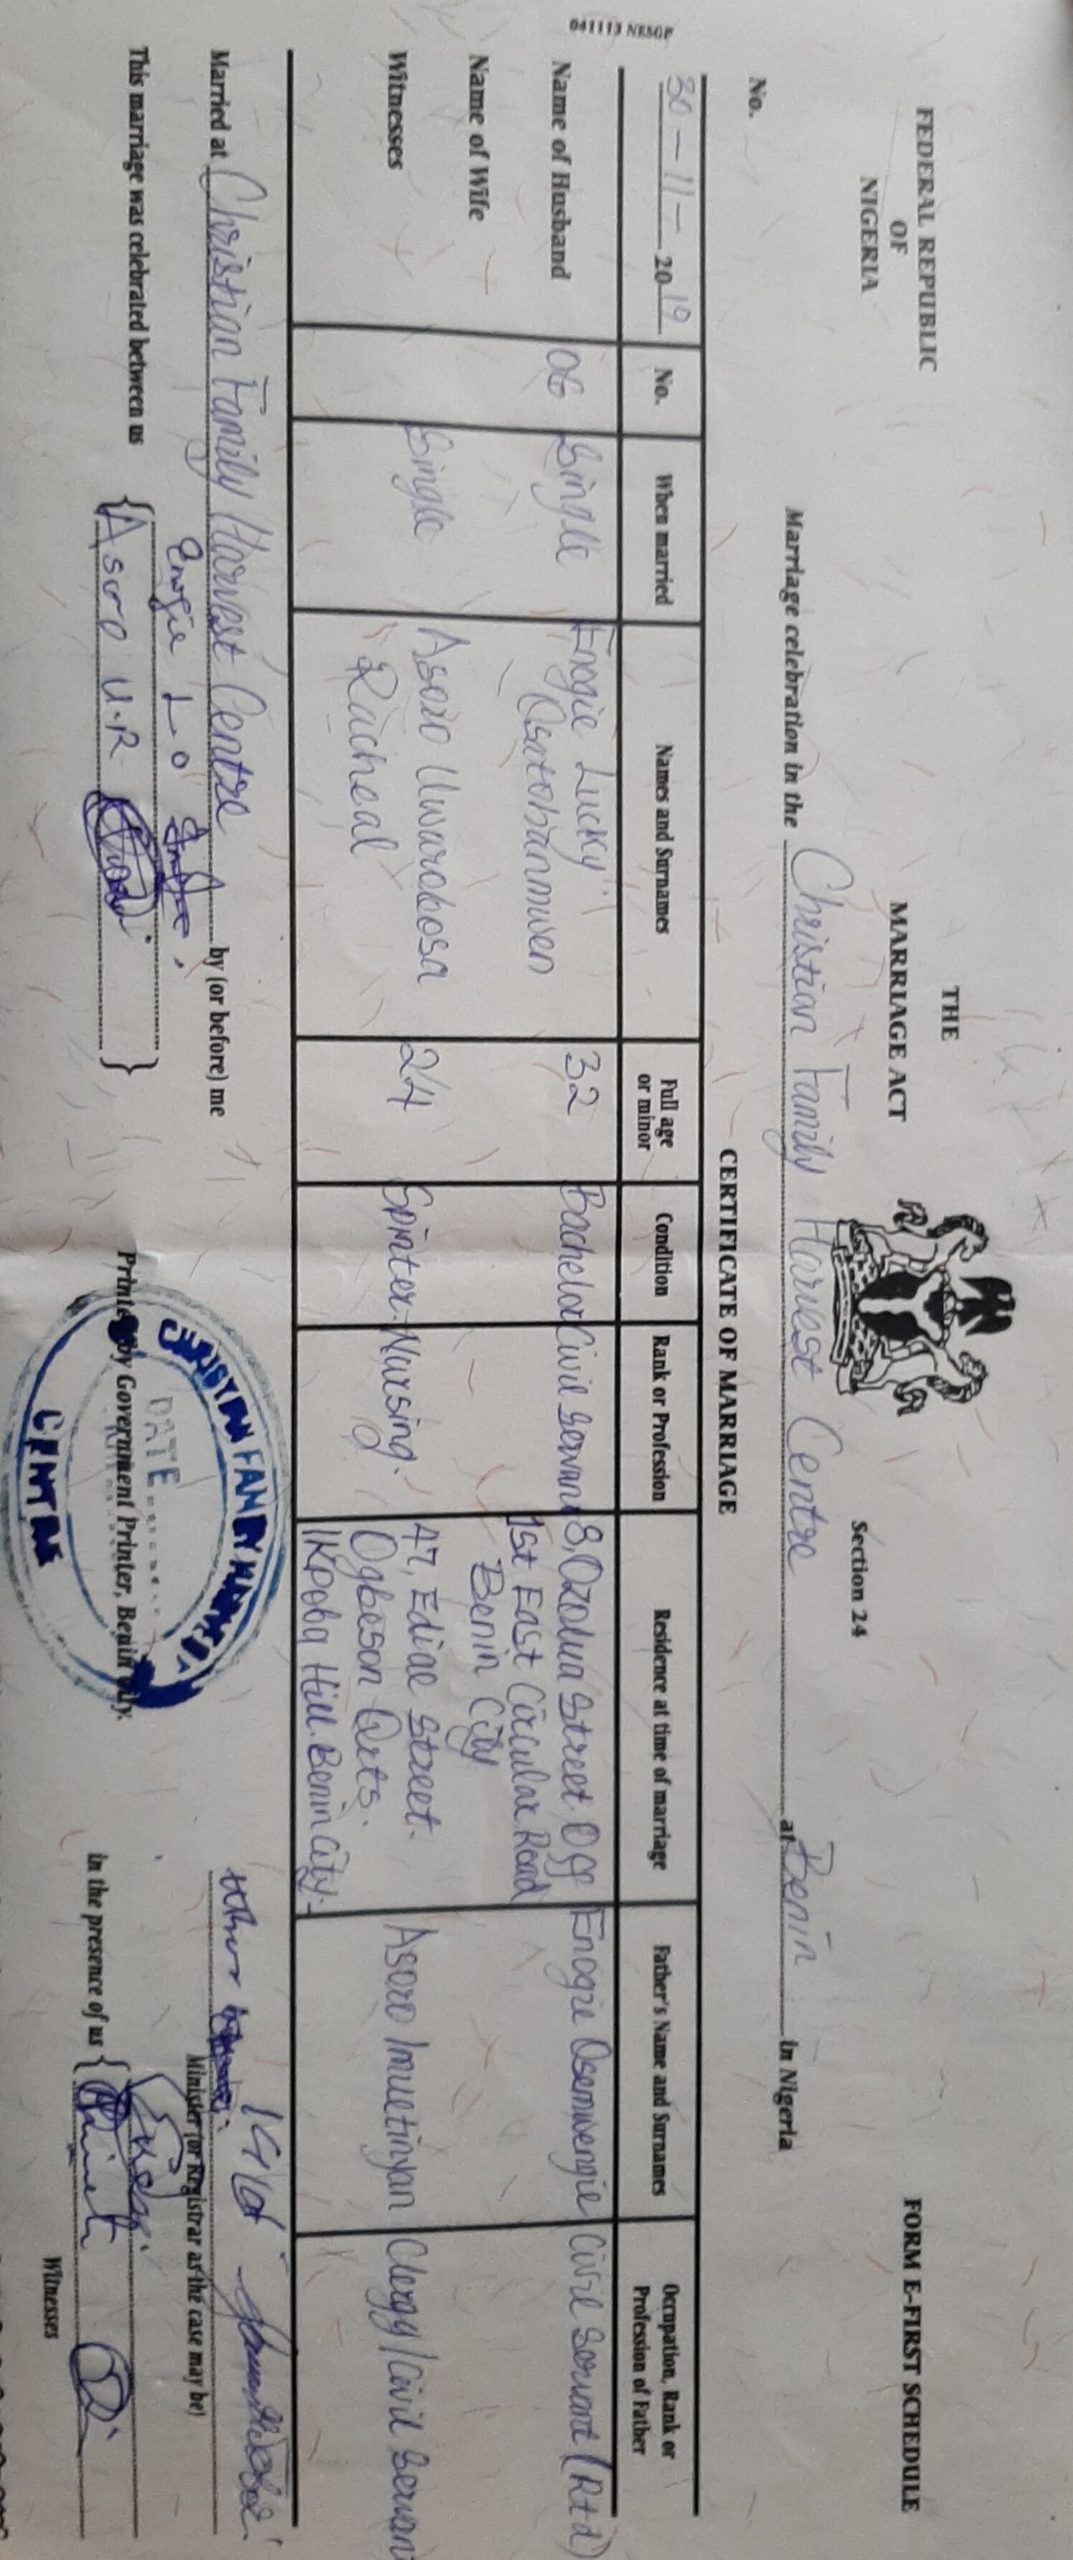 041113 NESGP
FEDERAL REPUBLIC
OF
NIGERIA
THE
MARRIAGE ACT
Section 24
FORM E-FIRST SCHEDULE
No.
Marriage celebration in the Christian Family Harvest Centre at Benin in Nigeria
CERTIFICATE OF MARRIAGE
30-11- 2019
No.
When married
Names and Surnames
Full age
or minor
Condition
Rank or Profession
Residence at time of marriage
Father's Name and Surnames
Occupation, Rank or
Profession of Father
Name of Husband
06
Single
Enogie Lucky
Osatohanmwen
32
Bachelor
Civil Servant
8, Ozolua Street Off
1st East Circular Road
Benin City
Enogie Osemwengie
Civil Servant (Rtd)
Name of Wife
Single
Asoro Uwarobosa
Racheal
24
Spinter
Nursing.
47, Ediae Street.
Ogbeson Qrts.
Ikpoba Hill. Benin City.
Asoro Imuetinyan
Clergy/Civil Servant
Witnesses
Married at Christian Family Harvest Centre by (or before) me
Minister (or Registrar as the case may be)
This marriage was celebrated between us
Enogie L O
Asoro U.R
in the presence of us
Witnesses
Printed by Government Printer, Benin City.
CHRISTIAN FAMILY HARVEST
DATE
CENTRE